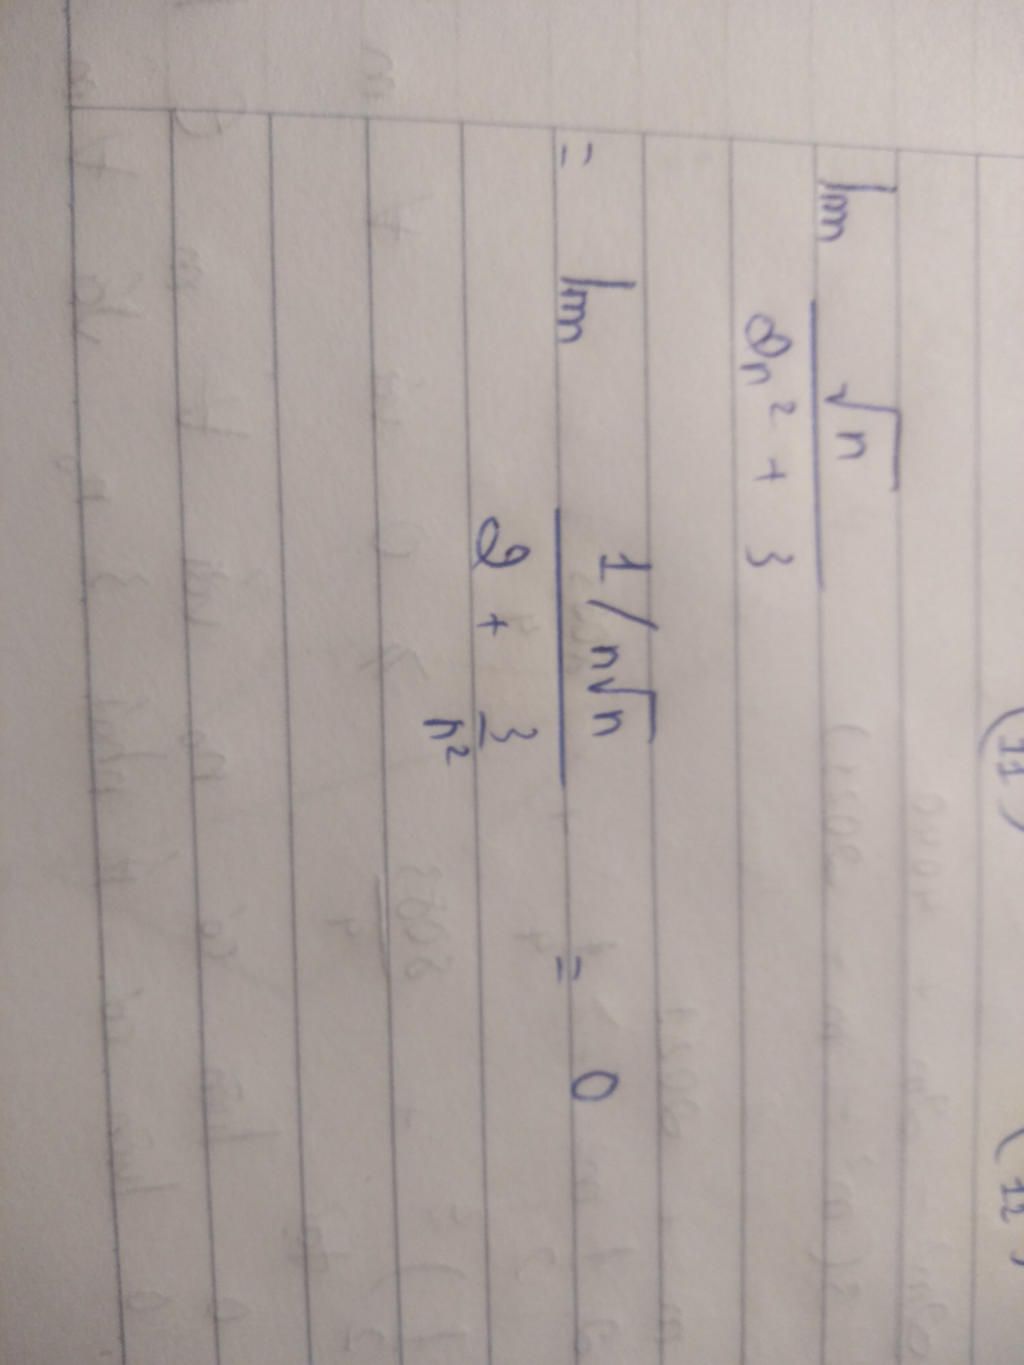 (11) (12)
lim √n / 2n² + 3
= lim 1/n√n / 2 + 3/n² = 0